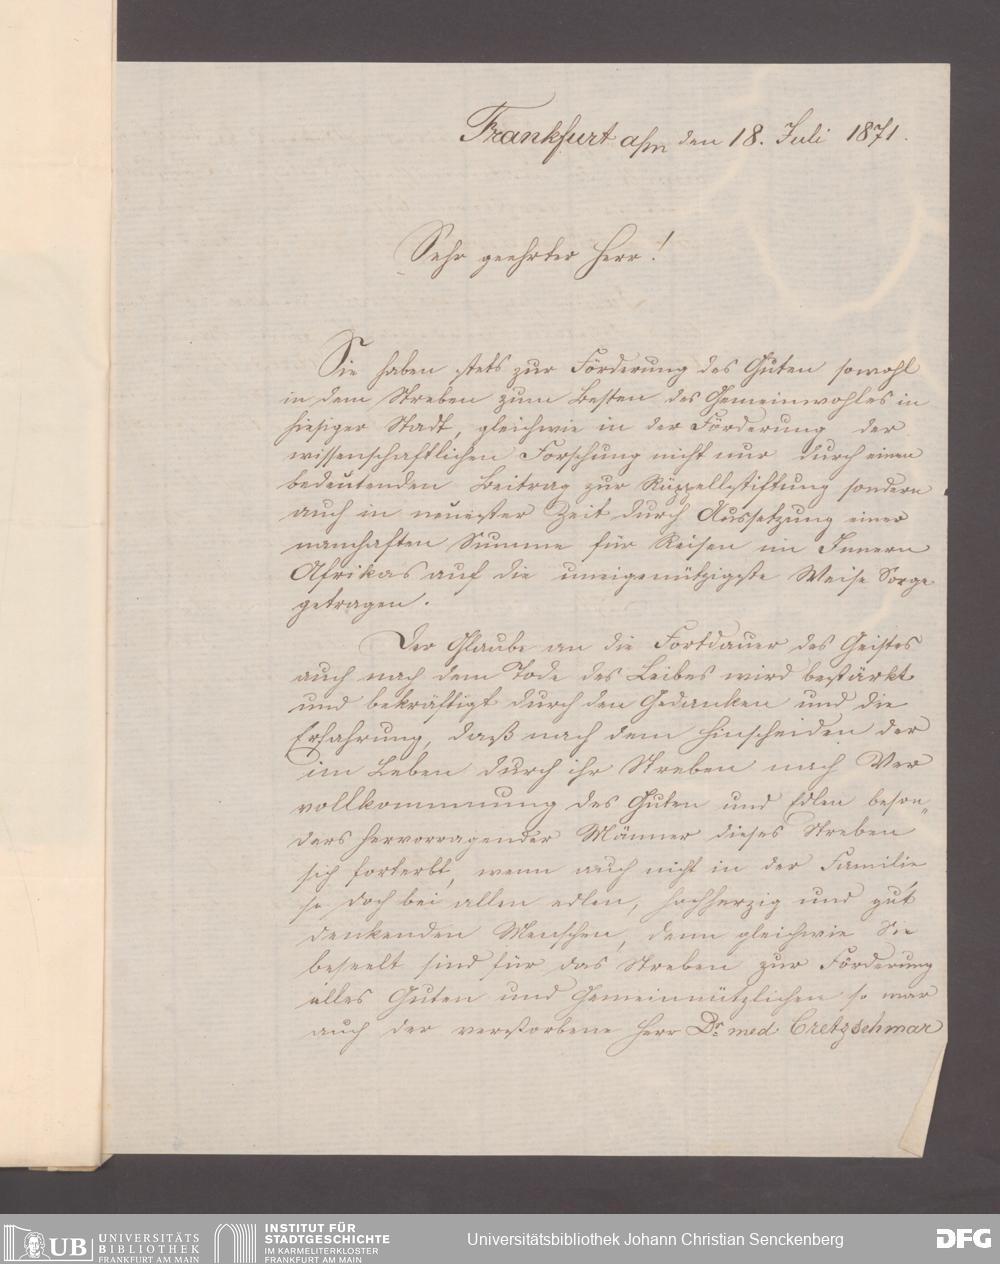 Frankfurt a/m den 18. Juli 1871.
Sehr geehrter Herr!
Sie haben stets zur Förderung des Guten sowohl
in dem Streben zum Besten des Gemeinwohles in
hiesiger Stadt, gleichwie in der Förderung der
wissenschaftlichen Forschung nicht nur durch einen
bedeutenden Beitrag zur Rüppellstiftung sondern
auch in neuester Zeit durch Aussetzung einer
namhaften Summe für Reisen im Innern
Afrikas auf die uneigenützigste Weise Sorge
getragen.
Der Glaube an die Fortdauer des Geistes
auch nach dem Tode des Leibes wird bestärkt
und bekräftigt durch den Gedanken und die
Erfahrung, daß nach dem Hinscheiden der
im Leben durch ihr Streben nach Ver
vollkommnung des Guten und Edlen beson„
ders hervorragender Männer dieses Streben
sich forterbt, wenn auch nicht in der Familie
so doch bei allen edlen, hochherzig und gut
denkenden Menschen, denn gleichwie Sie
beseelt sind für das Streben zur Förderung
alles Guten und Gemeinnützlichen so war
auch der verstorbene Herr Dr. med Cretzschmar
UB UNIVERSITÄTS
BIBLIOTHEK
FRANKFURT AM MAIN
INSTITUT FÜR
STADTGESCHICHTE
IM KARMELITERKLOSTER
FRANKFURT AM MAIN
Universitätsbibliothek Johann Christian Senckenberg
DFG